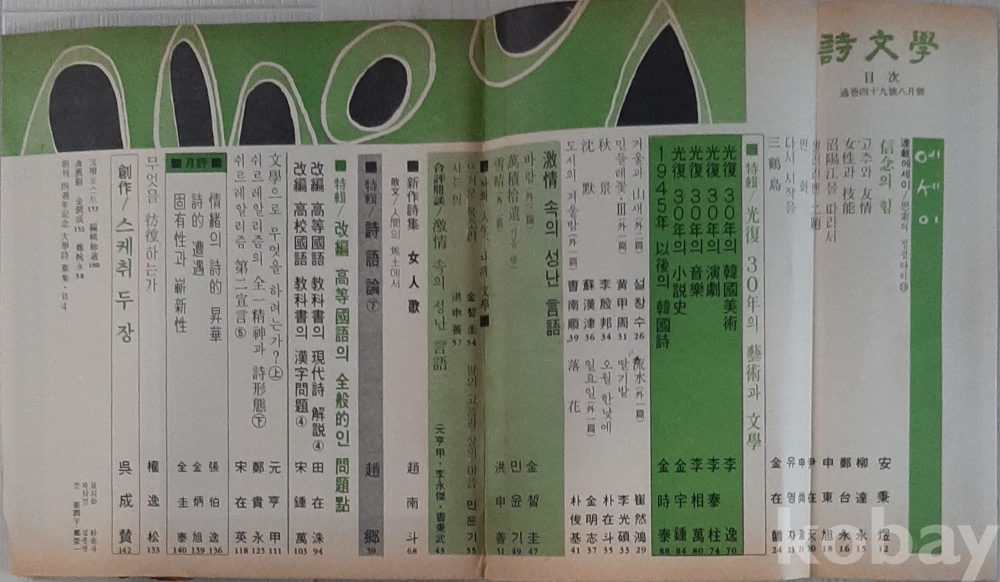 詩文學
目次
通卷四十九號八月號
에세이
連載에세이/思索의 징검다리⑩
信念의 힘 安秉煜 12
고츠와 友情 柳達永 16
女性과 技能 鄭台
沼陽江을 따라서 申東旭 18
三鶴島 金在
다시 시작을
■特輯/光復 30年의 藝術과 文學
光復 30年의 韓國美術 李逸 70
光復 30年의 演劇 李泰柱 74
光復 30年의 音樂 李相萬 80
光復 30年의 小説史 金宇鍾 84
1945年 以後의 韓國詩 金時泰 88
거울과 山새(外一篇) 설창수 26
민들레꽃·Ⅲ(外一篇) 黄甲周 31
秋景 李殷邦 34
沈默 蘇漢津 36
도시의 겨울밤(外一篇) 曺南順 39
流水(外一篇) 崔然鴻 29
딸기밭 李光碩 33
오월 한낮에 朴在斗 35
일요일(外一篇) 金明志 37
落花 朴俊基 41
激情 속의 성난 言語
바람(外二篇) 金晳圭 47
萬積拾遺 민윤기 49
雪晴(外二篇) 洪申善 51
金晳圭 54
민윤기 55
洪申善 57
合評餘談/激情 속의 성난 言語 元亨甲·李永傑·曺秉武 43
■新作詩集 女人歌 趙南斗 68
散文/人間의 焦土에서
■特輯/詩語論㊦ 趙鄕 59
■特輯/改編 高等國語의 全般的인 問題點
改編 高等國語 教科書의 現代詩 解說④ 田在洙 94
改編 高校國語 教科書의 漢字問題④ 宋鍾萬 103
文學으로 무엇을 하려는가?㊤ 元亨甲 111
쉬르레알리즘의 全一精神과 詩形態㊦ 鄭貴永 125
쉬르레알리즘 第二宣言⑤ 宋在英 118
■月評■
情緒의 詩的 昇華 張伯逸 136
詩的 遭遇 金炳旭 139
固有性과 嶄新性 全圭泰 140
무엇을 彷徨하는가 權逸松 133
創作/스케취 두 장 吳成贊 142
編輯餘適
創刊 四週年記念 大學詩 募集·114
kobay